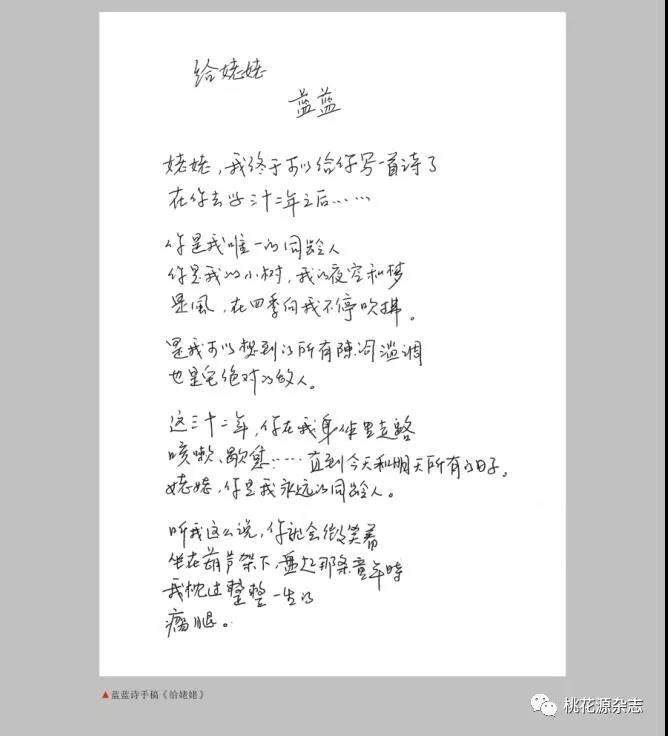 给姥姥
蓝蓝
姥姥，我终于可以给你写一首诗了
在你去世三十二年之后……
你是我唯一的同龄人
你是我的小树，我的夜空和梦
是風，在四季向我不停吹拂。
是我可以想到的所有陈词滥调
也是它绝对的敌人。
这三十二年，你在我身体里走路
咳嗽、歇息……直到今天和明天所有的日子。
姥姥，你是我永远的同龄人。
听我这么说，你就会微笑着
坐在葫芦架下，盘起那条童年时
我枕过整整一生的
瘸腿。
▲蓝蓝诗手稿《给姥姥》
桃花源杂志